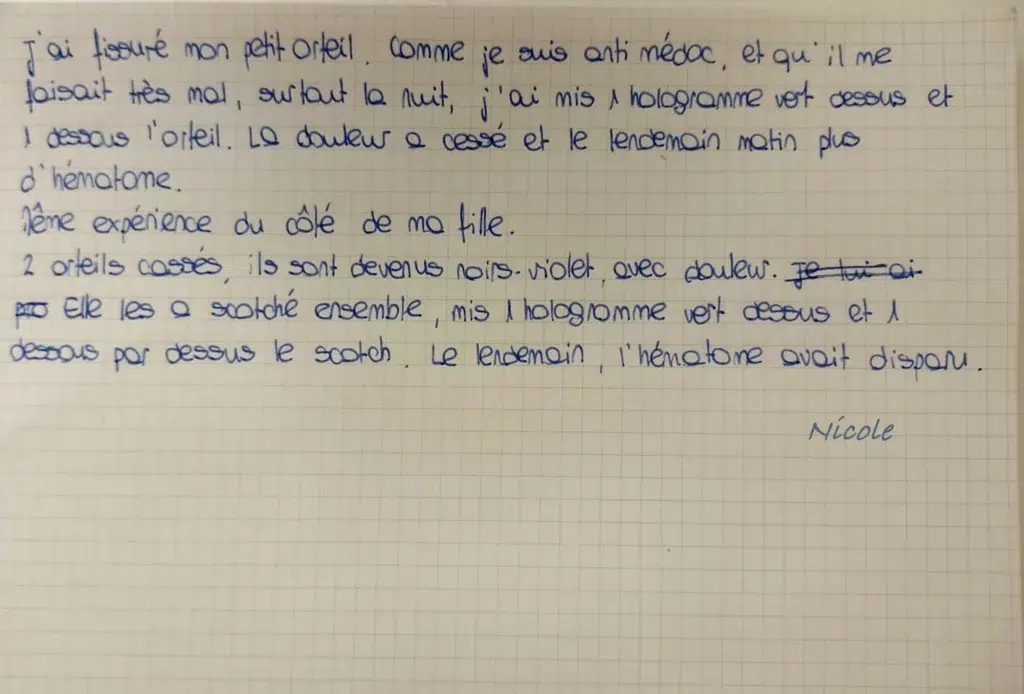 j'ai fissuré mon petit orteil. Comme je suis anti médoc, et qu'il me
faisait très mal, surtout la nuit, j'ai mis 1 hologramme vert dessus et
1 dessous l'orteil. La douleur a cessé et le lendemain matin plus
d'hématome.
2ème expérience du côté de ma fille.
2 orteils cassés, ils sont devenus noirs-violet, avec douleur. Je lui ai
Elle les a scotché ensemble, mis 1 hologramme vert dessus et 1
dessous par dessus le scotch. Le lendemain, l'hématome avait disparu.
Nicole